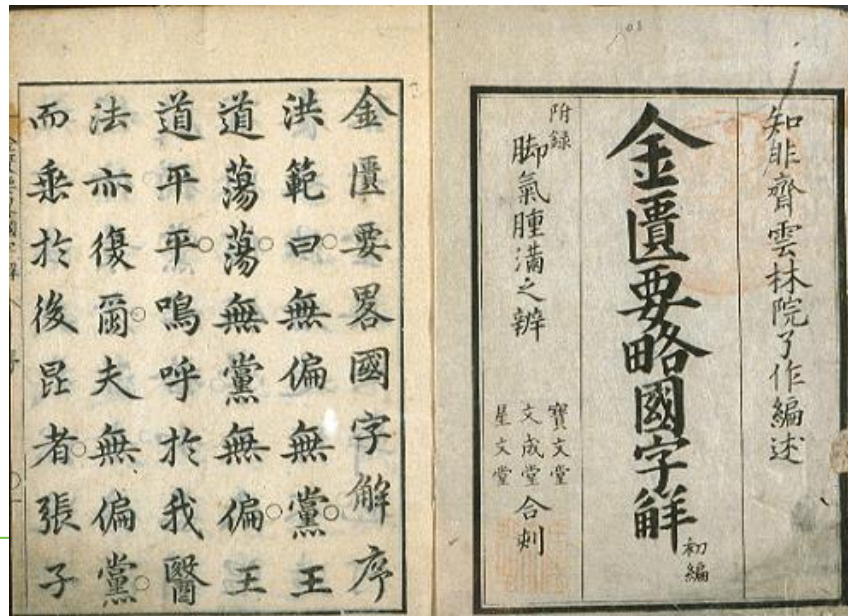 知非齋雲林院了作編述
金匱要略國字解
初編
附録
脚氣腫滿之辨
寶文堂
文成堂
星文堂
合刻
金匱要畧國字解序
洪範曰無偏無黨王
道蕩蕩無黨無偏王
道平平鳴呼於我醫
法亦復爾夫無偏黨
而垂於後昆者張子